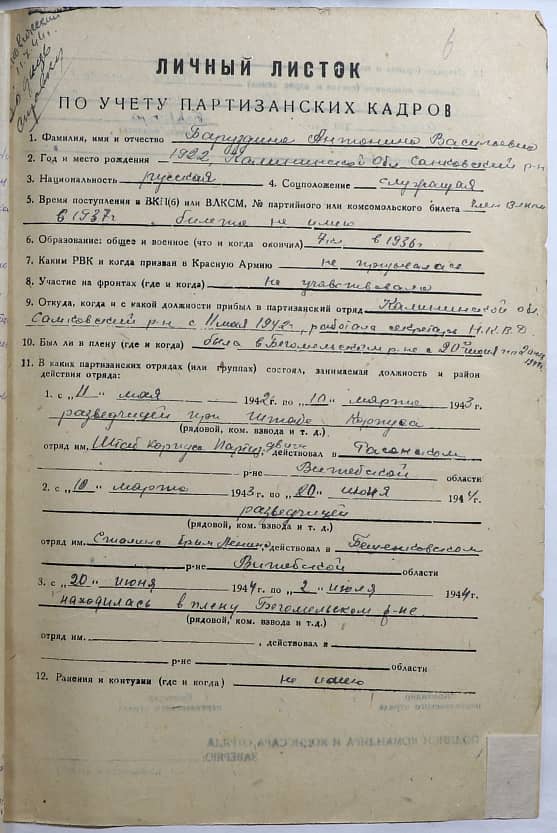 6
ЛИЧНЫЙ ЛИСТОК
ПО УЧЕТУ ПАРТИЗАНСКИХ КАДРОВ
1. Фамилия, имя и отчество Антонина Васильевна
2. Год и место рождения 1922, Калининской обл Сонковский р-н
3. Национальность русская 4. Соцположение служащая
5. Время поступления в ВКП(б) или ВЛКСМ, № партийного или комсомольского билета
в 1937г. билета не имею
6. Образование: общее и военное (что и когда окончил) 7 кл. в 1936г
7. Каким РВК и когда призван в Красную Армию не призывалась
8. Участие на фронтах (где и когда) не участвовала
9. Откуда, когда и с какой должности прибыл в партизанский отряд Калининской обл.
Сонковский р-н с 11 мая 1942г, работала секретарь Н.К.В.Д.
10. Был ли в плену (где и когда) была в Бегомельском р-не с 20 июня по 2 июля
11. В каких партизанских отрядах (или группах) состоял, занимаемая должность и район
действия отряда:
1. с „11" мая 1942г. по „10" марта 1943 г.
разведчицей при Штабе Корпуса
(рядовой, ком. взвода и т. д.)
отряд им. Штаб Корпуса Парти. движ действовал в
р-не Витебской области
2. с „10" марта 1943 г. по „20" июня 1944 г.
разведчицей
(рядовой, ком. взвода и т. д.)
отряд им. Сталина Ленина, действовал в Бешенковском
р-не Витебской области
3. с „20" июня 1944 г. по „2" июля 1944 г.
находилась в плену Бегомельском р-не
(рядовой, ком. взвода и т. д.)
отряд им. , действовал в
р-не области
12. Ранения и контузии (где и когда) не имею